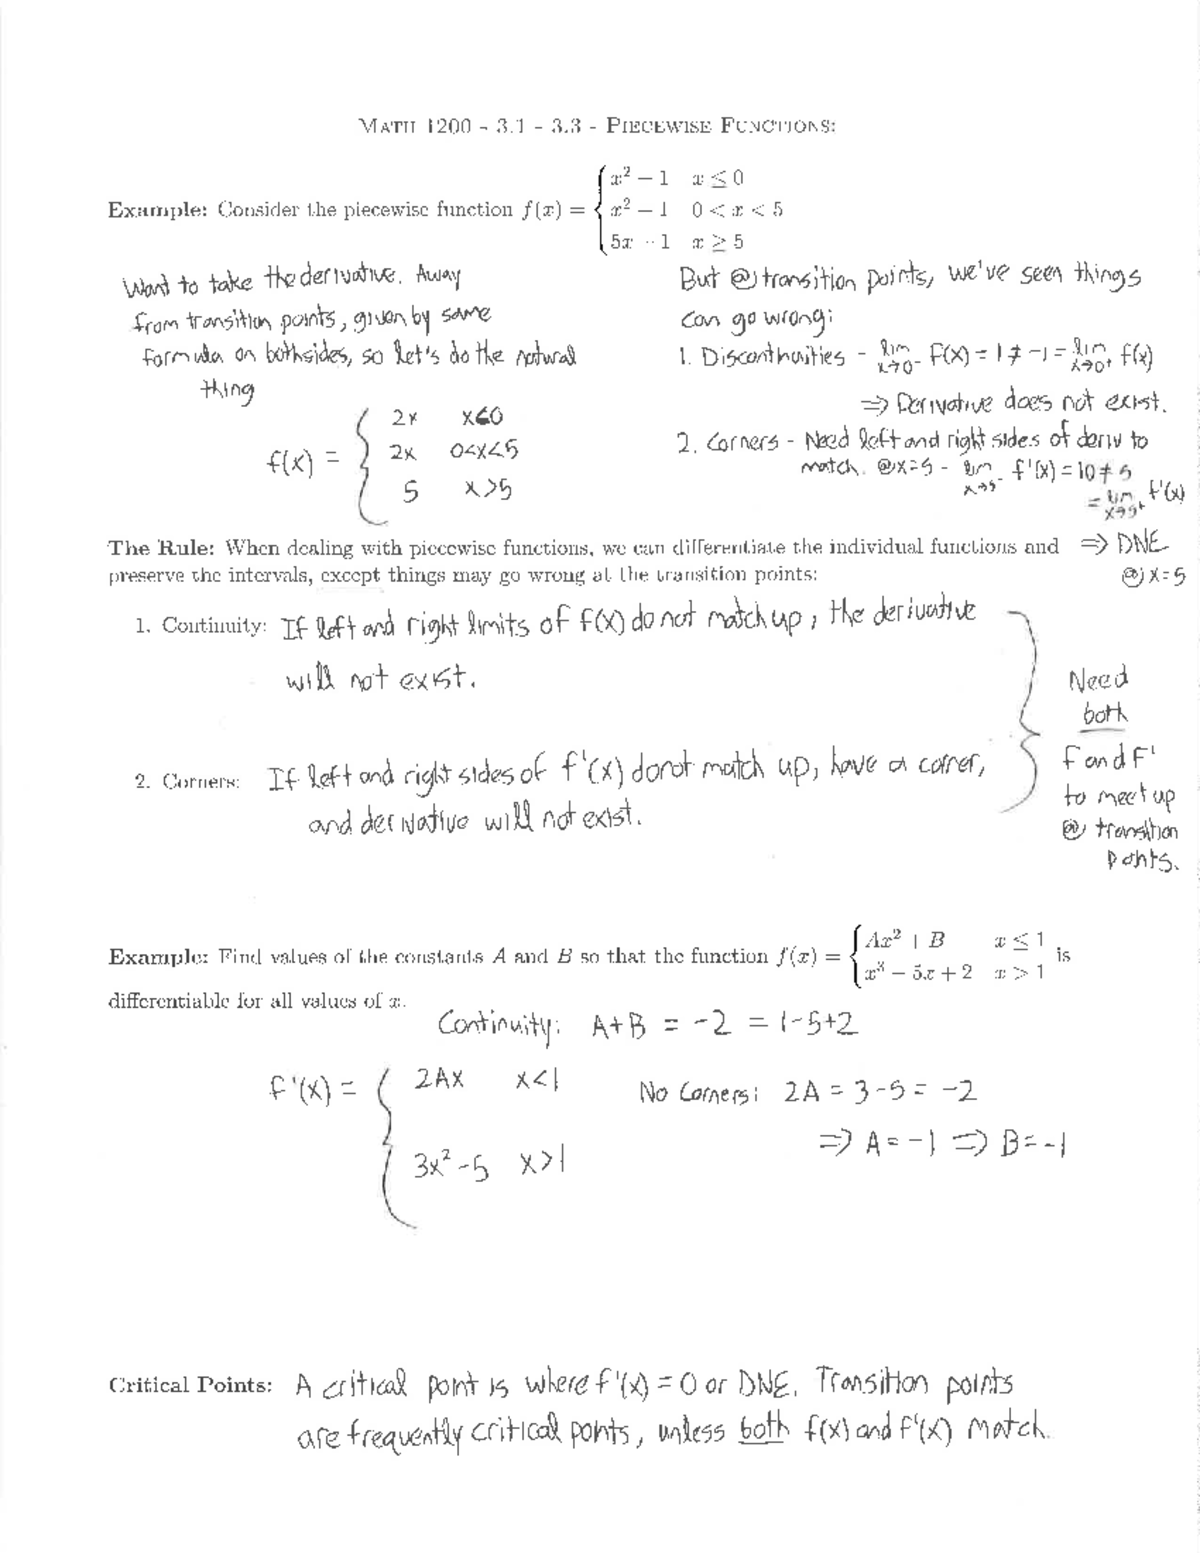 MATH 1200 - 3.1 - 3.3 - PIECEWISE FUNCTIONS:
Example: Consider the piecewise function f(x) = { x² − 1 x ≤ 0
x² − 1 0 < x < 5
5x − 1 x ≥ 5
Want to take the derivative. Away
from transition points, given by same
formula on both sides, so let's do the natural
thing
f(x) = { 2x x<0
2x 0<x<5
5 x>5
But @ transition points, we've seen things
can go wrong:
1. Discontinuities - lim x→0⁻ f(x) = 1 ≠ -1 = lim x→0⁺ f(x)
⇒ Derivative does not exist.
2. Corners - Need left and right sides of deriv to
match. @x=5 - lim x→5⁻ f'(x) = 10 ≠ 5
= lim x→5⁺ f'(x)
⇒ DNE
@ x=5
The Rule: When dealing with piecewise functions, we can differentiate the individual functions and
preserve the intervals, except things may go wrong at the transition points:
1. Continuity: If left and right limits of f(x) do not match up, the derivative
will not exist.
2. Corners: If left and right sides of f'(x) do not match up, have a corner,
and derivative will not exist.
Need
both
f and f'
to meet up
@ transition
points.
Example: Find values of the constants A and B so that the function f(x) = { Ax² + B x ≤ 1
x³ − 5x + 2 x > 1 is
differentiable for all values of x.
Continuity: A+B = -2 = 1-5+2
f'(x) = { 2Ax x<1
3x²-5 x>1
No Corners: 2A = 3-5 = -2
⇒ A = -1 ⇒ B = -1
Critical Points: A critical point is where f'(x) = 0 or DNE. Transition points
are frequently critical points, unless both f(x) and f'(x) match.